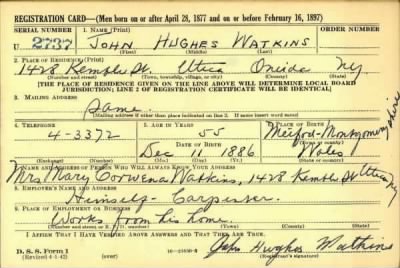 REGISTRATION CARD—(Men born on or after April 28, 1877 and on or before February 16, 1897)
SERIAL NUMBER 1. NAME (Print) ORDER NUMBER
U 2737 JOHN HUGHES WATKINS
(First) (Middle) (Last)
2. PLACE OF RESIDENCE (Print)
1428 Kemble St. Utica Oneida NY
(Number and street) (Town, township, village, or city) (County) (State)
[THE PLACE OF RESIDENCE GIVEN ON THE LINE ABOVE WILL DETERMINE LOCAL BOARD
JURISDICTION; LINE 2 OF REGISTRATION CERTIFICATE WILL BE IDENTICAL]
3. MAILING ADDRESS
Same
[Mailing address if other than place indicated on line 2. If same insert word same]
4. TELEPHONE 5. AGE IN YEARS 6. PLACE OF BIRTH
4-3372 55 Meiford-Montgomeryshire
DATE OF BIRTH (Town or county)
Dec 11 1886 Wales
(Exchange) (Number) (Mo.) (Day) (Yr.) (State or country)
7. NAME AND ADDRESS OF PERSON WHO WILL ALWAYS KNOW YOUR ADDRESS
Mrs Mary Corwena Watkins, 1428 Kemble St Utica NY
8. EMPLOYER'S NAME AND ADDRESS
Himself - Carpenter.
9. PLACE OF EMPLOYMENT OR BUSINESS
Works from his home.
(Number and street or R. F. D. number) (Town) (County) (State)
I AFFIRM THAT I HAVE VERIFIED ABOVE ANSWERS AND THAT THEY ARE TRUE.
D. S. S. Form 1
(Revised 4-1-42) (over) John Hughes Watkins
(Registrant's signature)